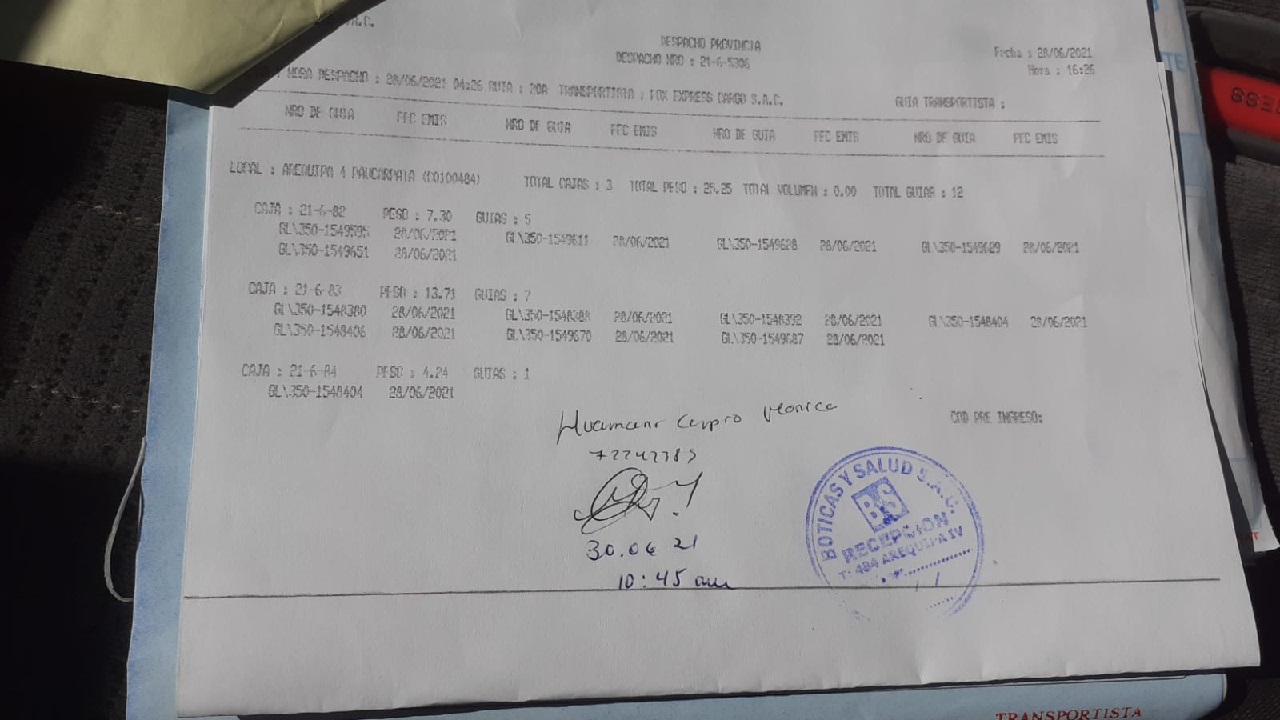 A.C.
DESPACHO PROVINCIA
DESPACHO NRO : 21-6-5306
Fecha : 28/06/2021
Hora : 16:26
HORA DESPACHO : 28/06/2021 04:26 RUTA : 20A TRANSPORTISTA : FOX EXPRESS CARGO S.A.C. GUIA TRANSPORTISTA :
NRO DE GUIA FEC EMIS NRO DE GUIA FEC EMIS NRO DE GUIA FEC EMIS NRO DE GUIA FEC EMIS
LOCAL : AREQUIPA 4 PAUCARPATA (C0100484) TOTAL CAJAS : 3 TOTAL PESO : 25.25 TOTAL VOLUMEN : 0.00 TOTAL GUIAS : 12
CAJA : 21-6-82 PESO : 7.30 GUIAS : 5
GL\350-1549595 28/06/2021 GL\350-1549611 28/06/2021 GL\350-1549628 28/06/2021 GL\350-1549629 28/06/2021
GL\350-1549651 28/06/2021
CAJA : 21-6-83 PESO : 13.71 GUIAS : 7
GL\350-1548380 28/06/2021 GL\350-1548388 28/06/2021 GL\350-1548392 28/06/2021 GL\350-1548404 28/06/2021
GL\350-1548406 28/06/2021 GL\350-1549670 28/06/2021 GL\350-1549687 28/06/2021
CAJA : 21-6-84 PESO : 4.24 GUIAS : 1
GL\350-1548404 28/06/2021
COD PRE INGRESO:
72242785
30.06 21
10:45 am
BOTICAS Y SALUD S.A.C.
BYS
RECEPCION
T- 484 AREQUIPA IV
TRANSPORTISTA